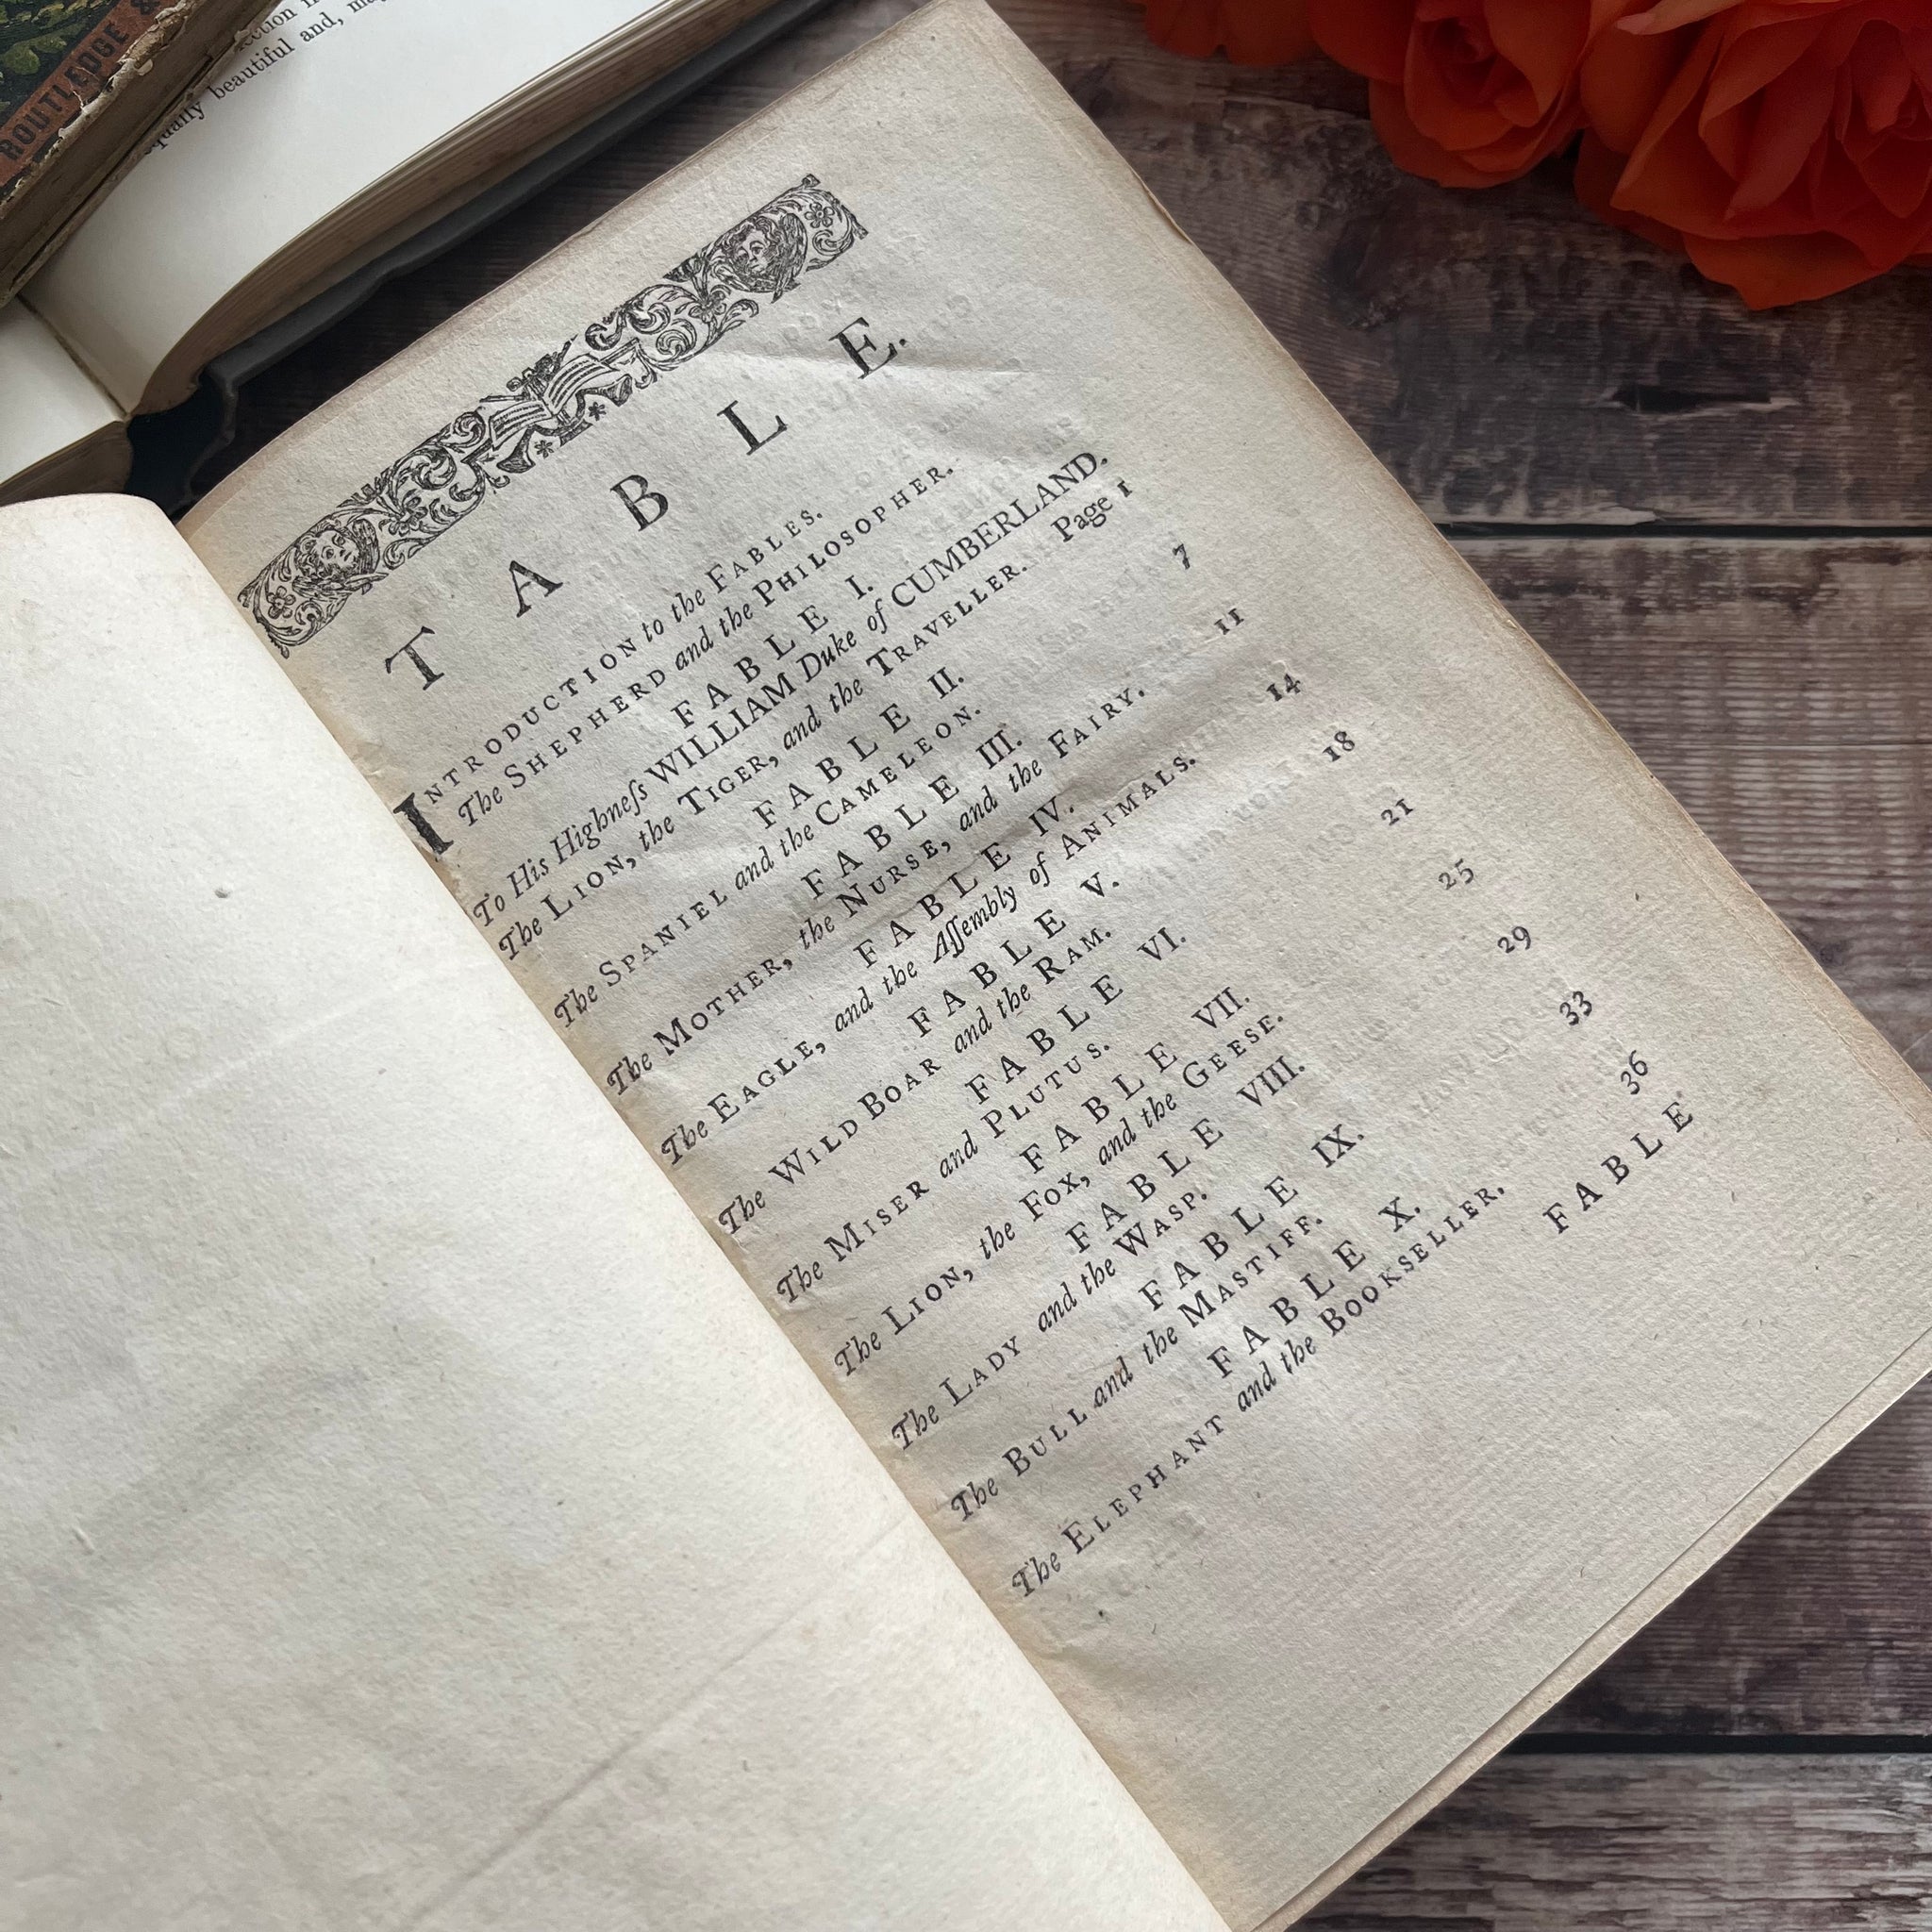 ROUTLEDGE &
ection
equally beautiful and,
T A B L E.
INTRODUCTION to the FABLES.
The SHEPHERD and the PHILOSOPHER.
FABLE I.
To His Highneſs WILLIAM Duke of CUMBERLAND.
The LION, the TIGER, and the TRAVELLER. Page 1
FABLE II.
The SPANIEL and the CAMELEON. 7
FABLE III.
The MOTHER, the NURSE, and the FAIRY. 11
FABLE IV.
The EAGLE, and the Aſſembly of ANIMALS. 14
FABLE V.
The WILD BOAR and the RAM. 18
FABLE VI.
The MISER and PLUTUS. 21
FABLE VII.
The LION, the FOX, and the GEESE. 25
FABLE VIII.
The LADY and the WASP. 29
FABLE IX.
The BULL and the MASTIFF. 33
FABLE X.
The ELEPHANT and the BOOKSELLER. 36
FABLE